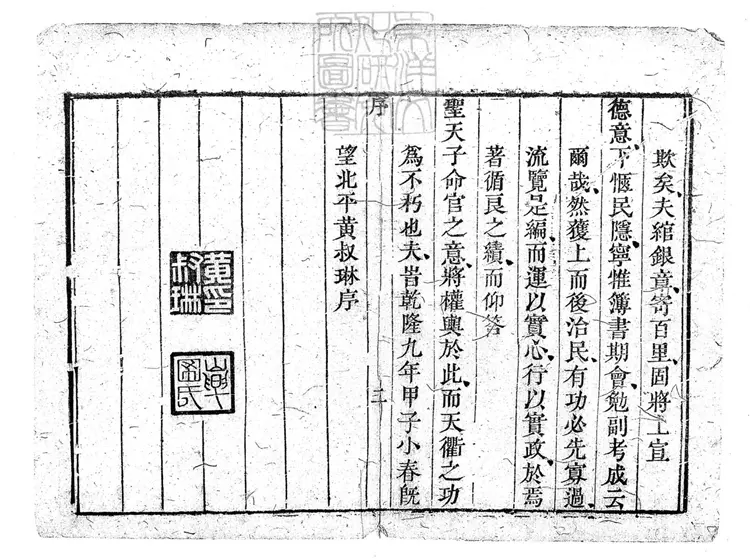 欺矣夫綰銀章寄百里固將上宣
德意下愜民隱寧惟簿書期會勉副考成云
爾哉然獲上而後治民有功必先寡過
流覽是編而運以實心行以實政於焉
著循良之績而仰答
聖天子命官之意將權輿於此而天衢之功
爲不朽也夫旹乾隆九年甲子小春旣
望北平黃叔琳序
序
三
黃叔琳印